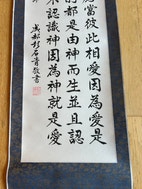 應當彼此相愛因為愛是
都是由神而生並且認
不認識神因為神就是愛
敬書